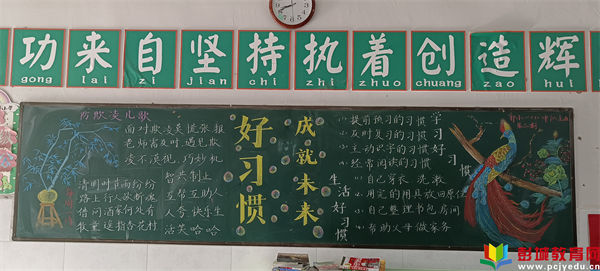 功来自坚持执着创造辉
gong lai zi jian chi zhi zhuo chuang zao hui
防欺凌儿歌
面对欺凌莫慌张 报
老师需及时 遇见欺
凌不漠视 巧妙机
智共制止
互帮互助人
人夸 快乐生
活笑哈哈
清明时节雨纷纷
路上行人欲断魂
借问酒家何处有
牧童遥指杏花村
好习惯
成就未来
学习好习惯
提前预习的习惯
及时复习的习惯
主动识字的习惯
经常阅读的习惯
生活好习惯
自己穿衣 洗漱
用完的用具放回原位
自己整理书包房间
帮助父母做家务
彭城教育网
www.pcjyedu.cn